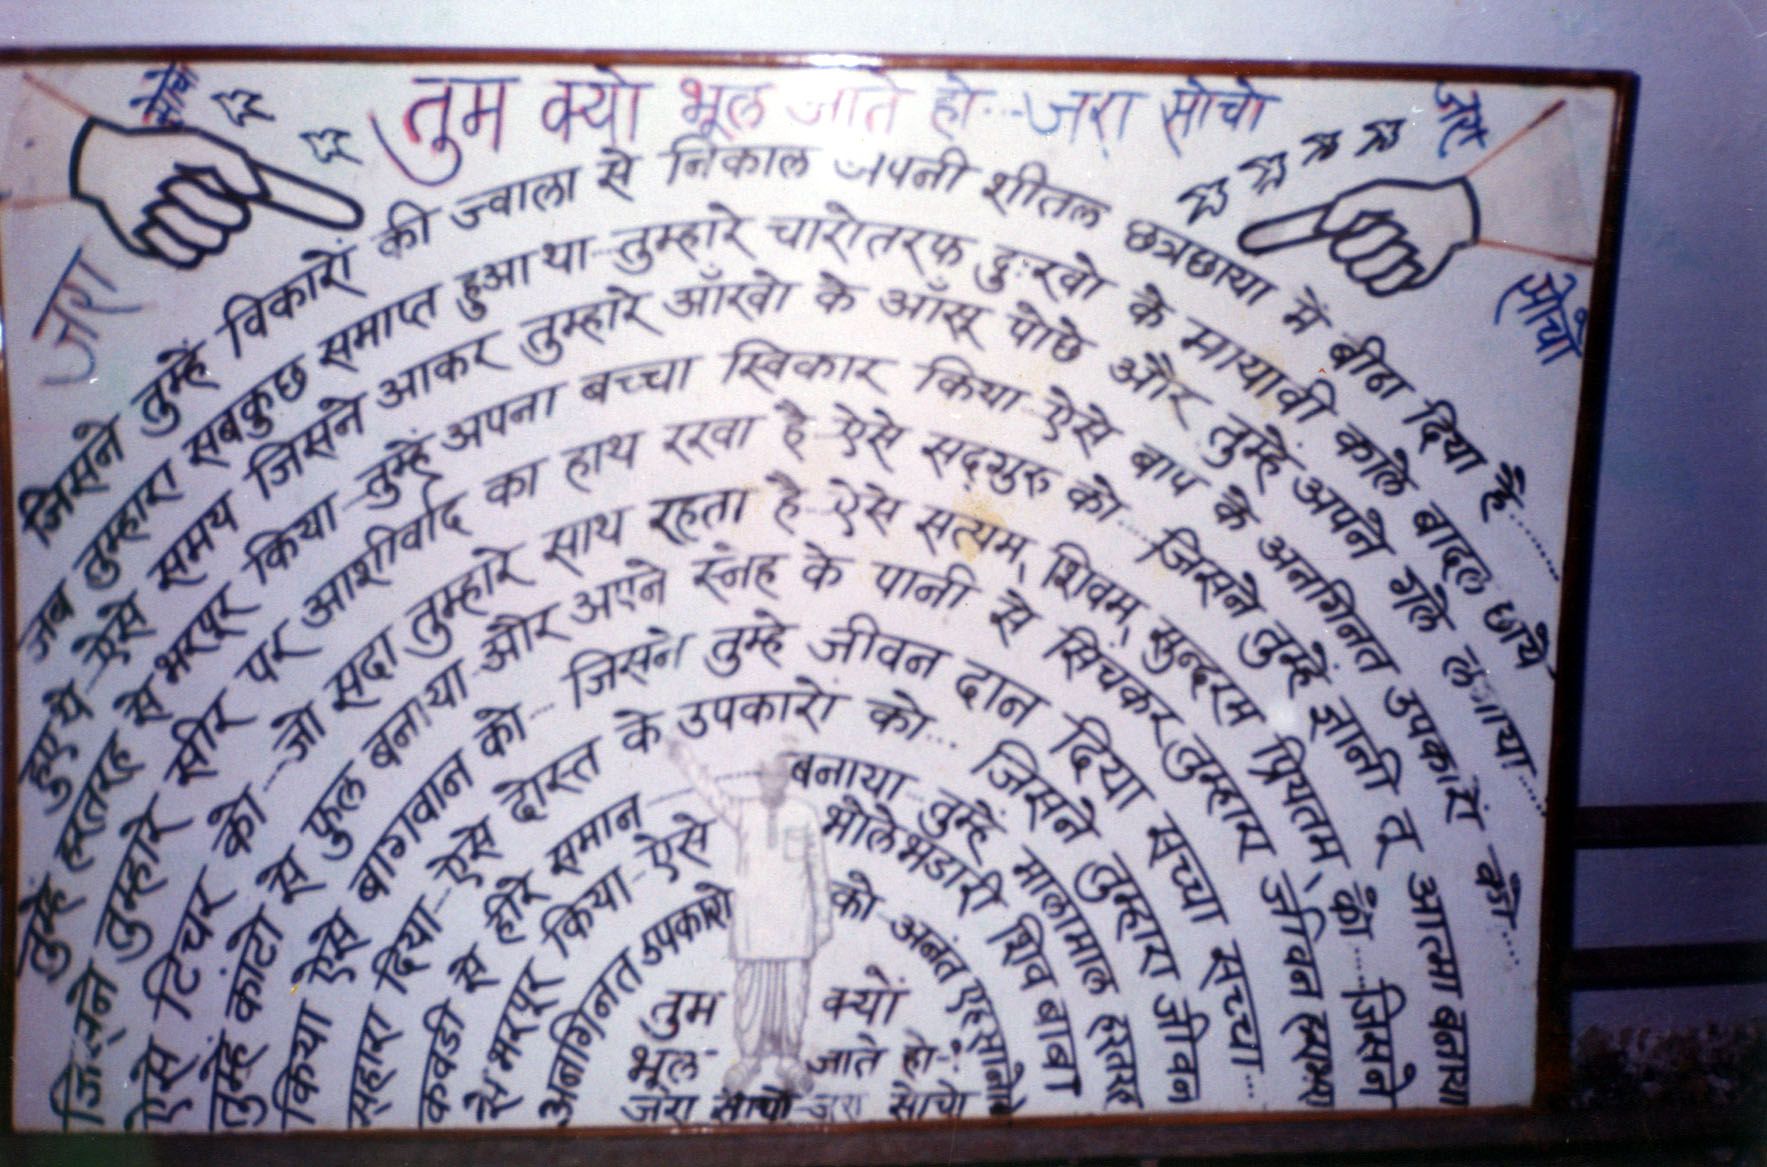 तुम क्यो भूल जाते हो...जरा सोचो
जरा
जरा
सोचो
जिसने तुम्हें विकारों की ज्वाला से निकाल अपनी शीतल छत्रछाया में बीठा दिया है......
जब तुम्हारा सबकुछ समाप्त हुआ था--तुम्हारे चारोतरफ दुःखो के मायावी काले बादल छाये
हुए थे--ऐसे समय जिसने आकर तुम्हारे आँखो के आँसू पोछे और तुम्हें अपने गले लगाया...
तुम्हे हरतरह से भरपूर किया--तुम्हें अपना बच्चा स्विकार किया--ऐसे बाप के अनगिनत उपकारों को....
जिसने तुम्हारे सीर पर आशीर्वाद का हाथ रखा है--ऐसे सद्गुरु को...जिसने तुम्हें ज्ञानी तू आत्मा बनाया
ऐसे टिचर को...जो सदा तुम्हारे साथ रहता है--ऐसे सत्यम्, शिवम्, सुन्दरम प्रियतम् को....जिसने
तुम्हे कांटो से फुल बनाया--और अपने स्नेह के पानी से सिंचकर तुम्हारा जीवन
किया ऐसे बागवान को...जिसने तुम्हे जीवन दान दिया सच्चा सच्चा...
सहारा दिया--ऐसे दोस्त के उपकारों को... जिसने तुम्हारा जीवन
कवडी से हीरे समान-- बनाया--तुम्हें मालामाल हरतरह
से भरपूर किया--ऐसे भोलेभंडारी शिव बाबा
अनगिनत उपकारो को--अनंत एहसानो
तुम क्यों
भूल जाते हो-!
जरा सोचो-जरा सोचो